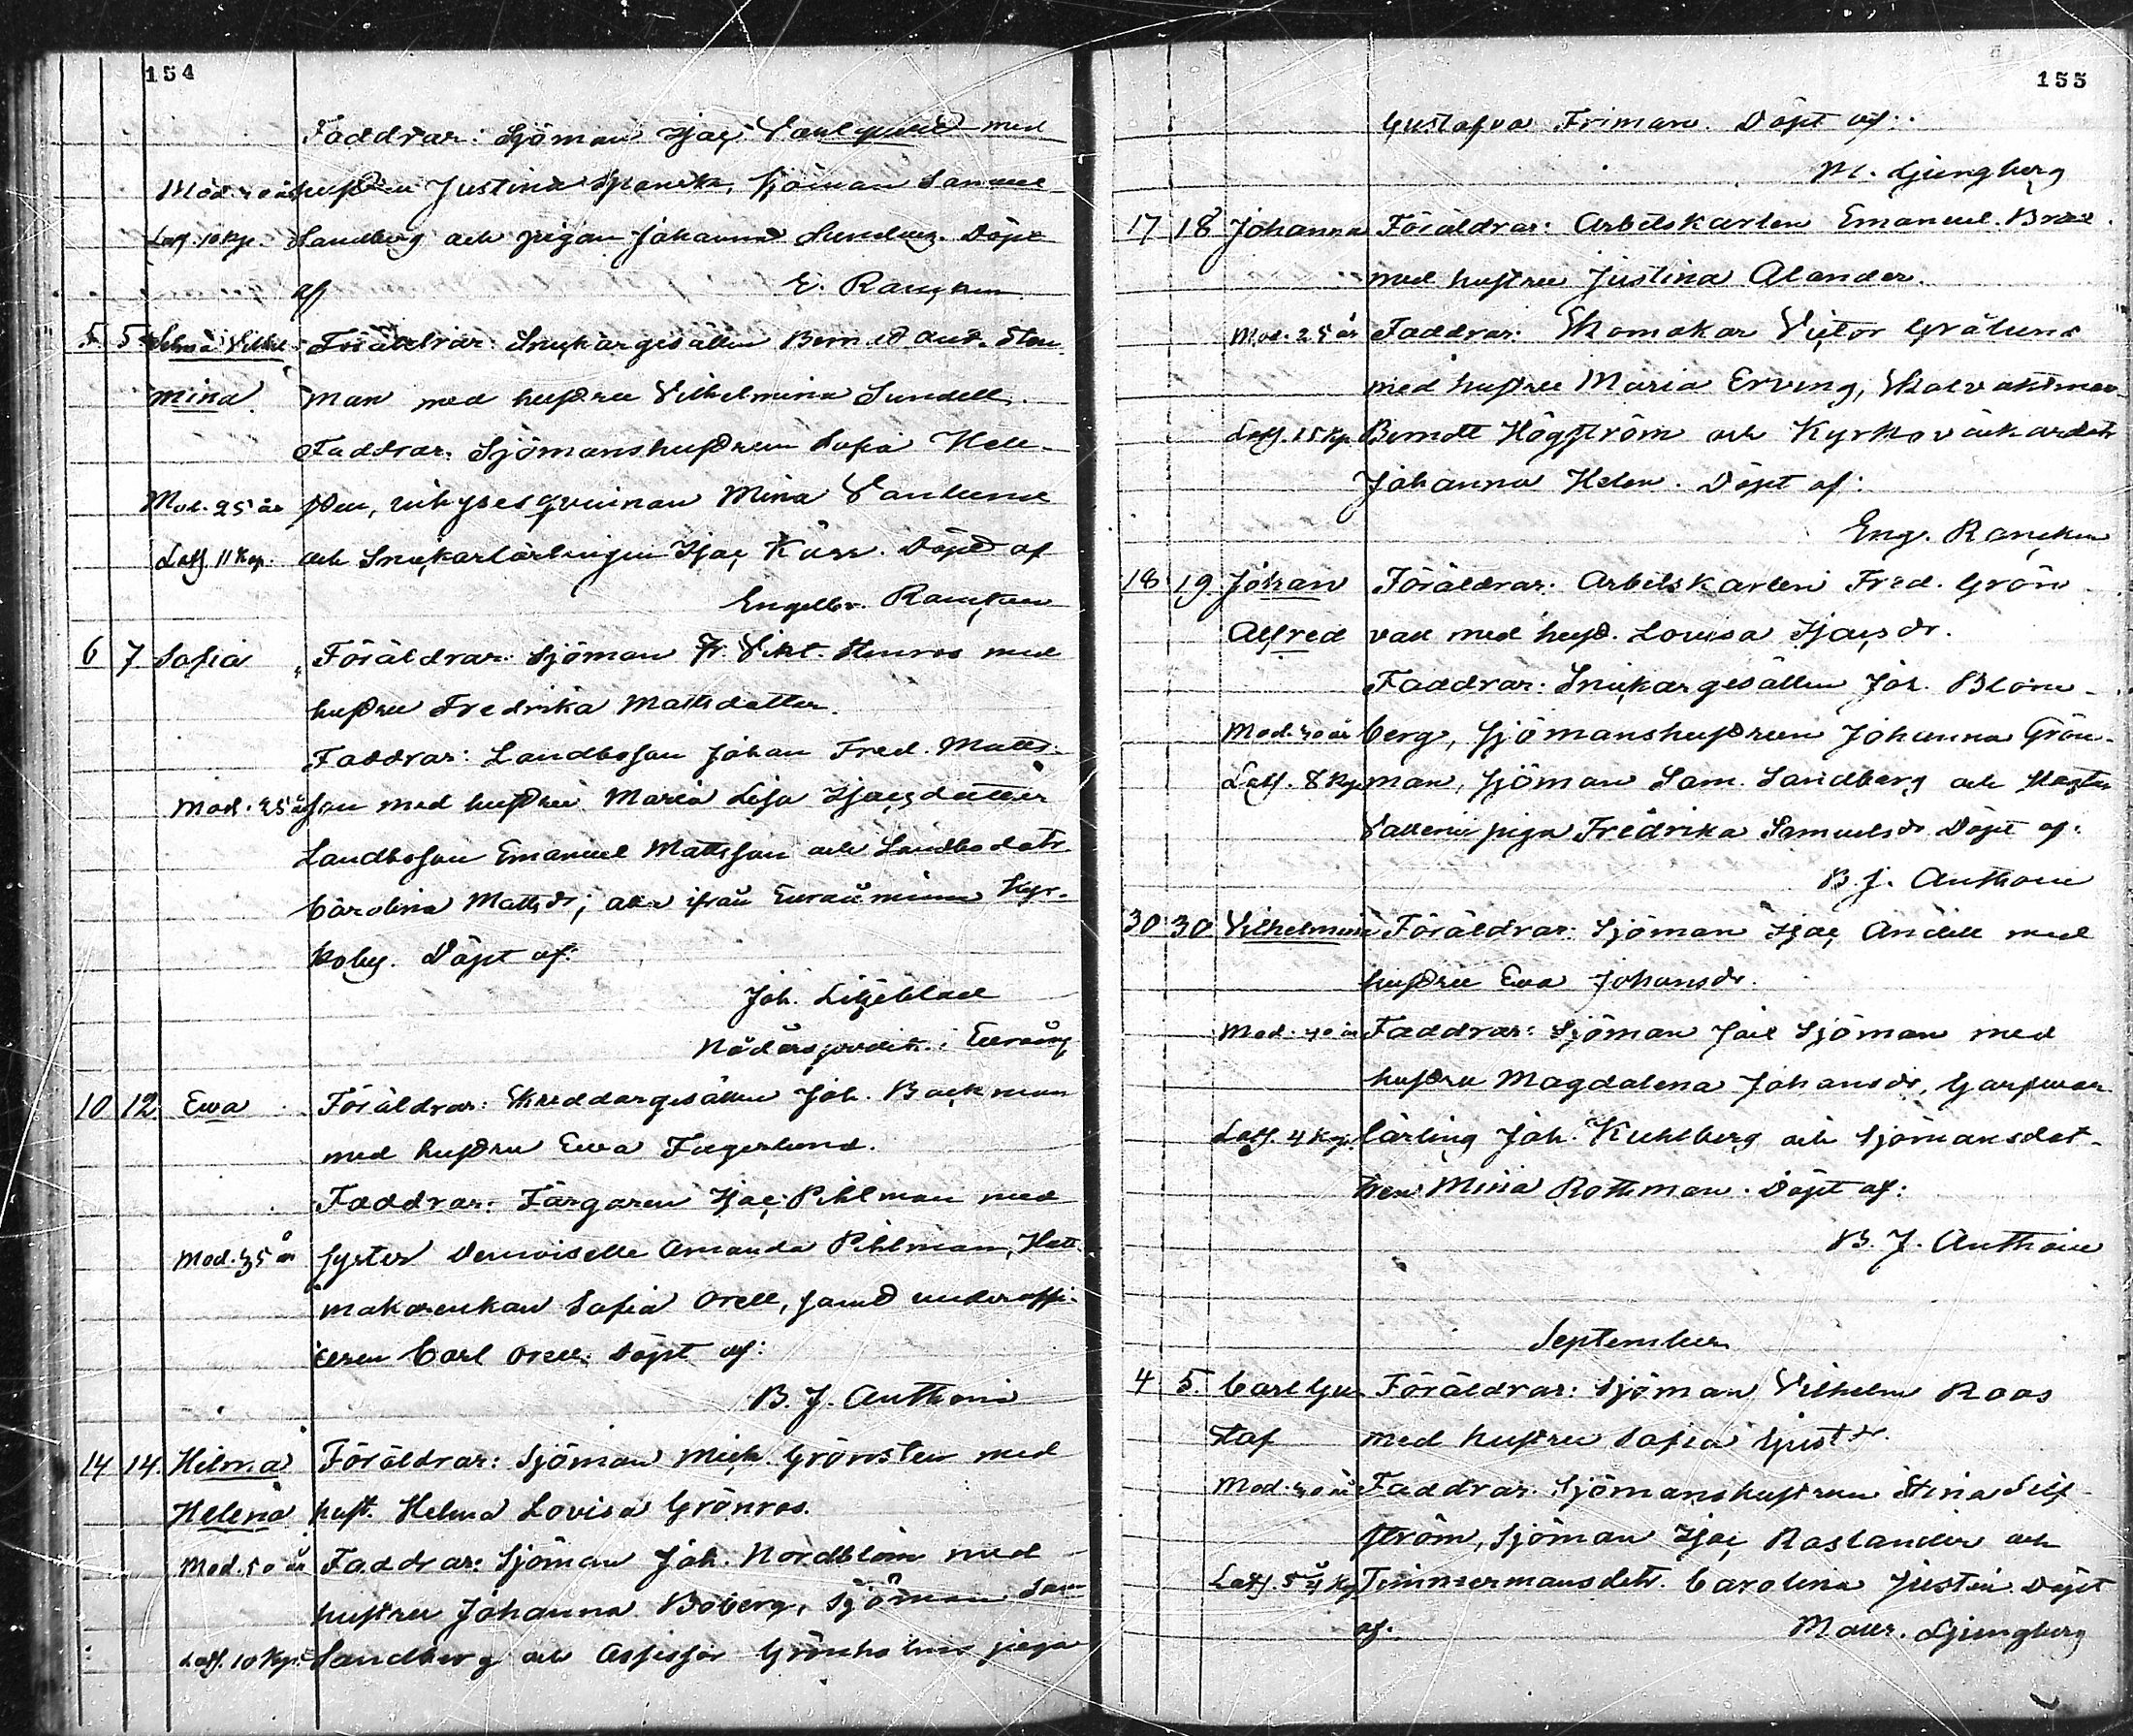 154
Faddrar: Sjöman Isac med
Mod. hustrun Justina Sjöman Samuel
Lösf. 10 kp. Sandberg och pigan Johanna Döpt
af E. Rancken
5 5 Selma Vilhel- Föräldrar: Snickargesällen Sten-
mina man med hustru Vilhelmina Sundell.
Faddrar: Sjömanshustrun Sofia Hell-
Mod. 25 år sten, inhysesqvinnan Mina
Lösf. 11 kop. och Snickarlärlingen Isac Döpt af
Engelbr. Rancken
6 7 Sofia Föräldrar: Sjöman Fr. Vikt. Stenros med
hustru Fredrika Mattsdotter.
Faddrar: Landboson Johan Fred. Matts-
Mod. 25 år son med hustru Maria Lisa Isacsdotter
Landboson Emanuel Mattsson och Landbodotr
Carolina Mattsdr, alla ifrån Euraåminne Kyr-
koby. Döpt af:
Joh. Liljeblad
Nådårspredik. i
10 12. Ewa Föräldrar: Skreddargesällen Joh. Backman
med hustru Ewa Fagerlund.
Faddrar: Färgaren Isac Pihlman med
Mod. 35 år syster Demoiselle Amanda Pihlman, Hatt-
makarenkan Sofia Orell, samt underoffi-
ceren Carl Orell. Döpt af:
B. J. Anthoni
14 14. Hilma Föräldrar: Sjöman Mich. Grönsten med
Helena hust. Helena Lovisa Grönros.
Mod. 50 år Faddrar: Sjöman Joh. Nordblom med
hustru Johanna Boberg, Sjöman Sam
Lösf. 10 kp. Sandberg och Assessor Grönholms piga
155
Gustafva Friman. Döpt af:
M. Ljungberg
17 18 Johanna Föräldrar: Arbetskarlen Emanuel
med hustru Justina Alander.
Mod. 25 år Faddrar: Skomakar Victor Grålund
med hustru Maria Erving,
Lösf. 15 kp. Berndt Högström och Kyrkoväktardotr
Johanna Helen. Döpt af:
Eng. Rancken
18 19. Johan Föräldrar: Arbetskarlen Fred. Grön-
Alfred vall med hust. Lovisa Isacsdr.
Faddrar: Snickargesällen Joh. Blom-
Mod. 40 år berg, Sjömanshustrun Johanna Grön-
Lösf. 8 kp. man, Sjöman Sam. Sandberg och
piga Fredrika Samuelsdr. Döpt af:
B. J. Anthoni
30 30 Vilhelmina Föräldrar: Sjöman Isac Andell med
hustru Ewa Johansdr.
Mod. 40 år Faddrar: Sjöman Joel Sjöman med
hustru Magdalena Johansdr, Garfvar-
Lösf. 4 kp. lärling Joh. Kuhlberg och Sjömansdot-
tren Mina Rothman. Döpt af:
B. J. Anthoni
September
4 5. Carl Gu- Föräldrar: Sjöman Vilhelm Roos
staf med hustru Sofia Gustdr.
Mod. 40 år Faddrar: Sjömanshustrun Stina Silf-
ström, Sjöman Isac Roslander och
Lösf. Timmermansdotr. Carolina Justin. Döpt
af: Matts. Ljungberg